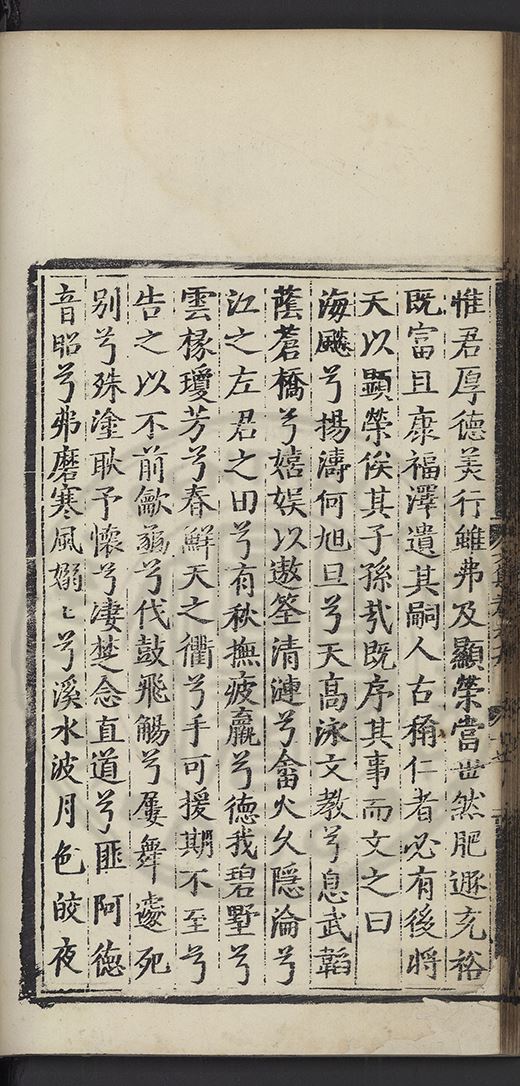 惟君厚德美行雖弗及顯榮當世然肥遯充裕
既富且康福澤遺其嗣人古稱仁者必有後將
天以顯榮俟其子孫㢤既序其事而文之曰
海颷兮揚濤何旭旦兮天高泳文教兮息武韜
蔭蒼橋兮嬉娱以遨筌清漣兮畬火久隱淪兮
江之左君之田兮有秋撫疲羸兮德我碧墅兮
雲椽瓊芳兮春鮮天之衢兮手可援期不至兮
告之以不前歈兮代鼓飛觴兮屢舞遽死
别兮殊塗耿予懷兮凄楚念直道兮匪阿德
音昭兮弗磨寒風嫋〻兮溪水波月色皎夜